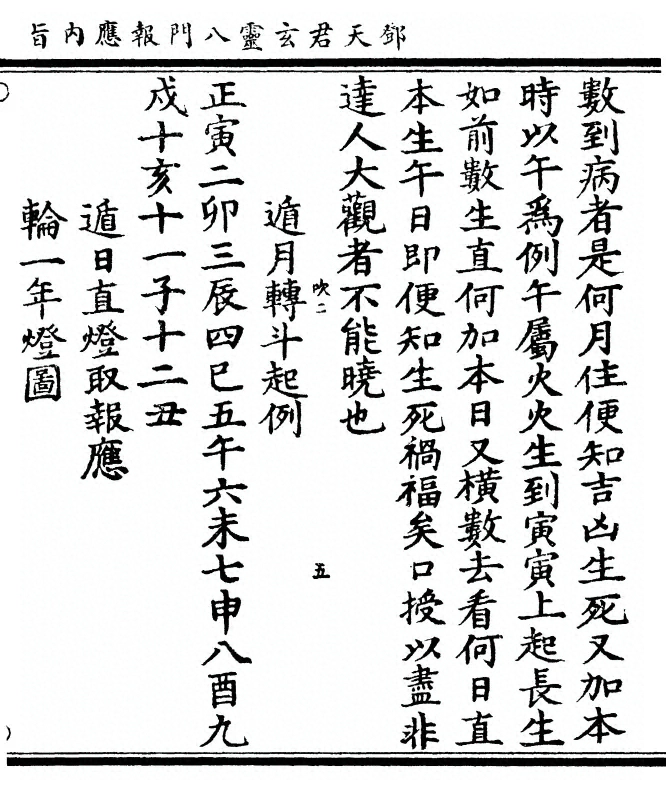 鄧天君玄靈八門報應內旨
數到病者是何月住便知吉凶生死又加本
時以午爲例午屬火火生到寅寅上起長生
如前數生直何加本日又橫數去看何日直
本生午日即便知生死禍福矣口授以盡非
達人大觀者不能曉也
吹二
五
遁月轉斗起例
正寅二卯三辰四巳五午六未七申八酉九
戍十亥十一子十二丑
遁日直燈取報應
輪一年燈圖